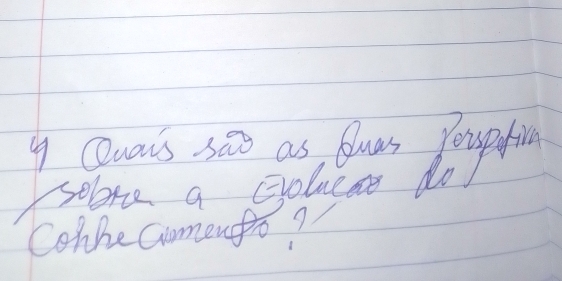 4 Quais são as Duas Perspetiva
sobre a Evolucão do
Conhecimento?